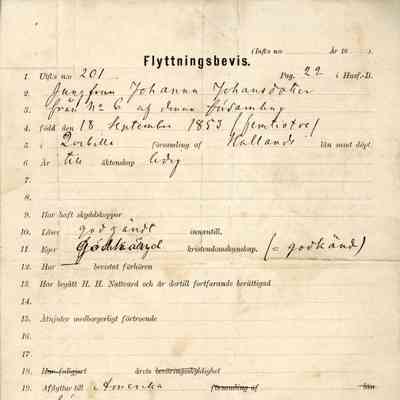 (Infts n:o År 18 ).
Flyttningsbevis.
1. Utfts n:o 201 Pag. 22 i Husf.-B.
2. Jungfrun Johanna Johansdotter
3. från No 6 af denna församling
4. född den 18 September 1853 /femtiotre/
5. i församling af Hallands län samt döpt.
6. Är till äktenskap ledig
7.
8.
9. Har haft skyddskoppor
10. Läser godkändt innantill.
11. Eger godkänd kristendomskunskap. (= godkänd)
12. Har bevistat förhören
13. Har begått H. H. Nattvard och är dertill fortfarande berättigad
14.
15. Åtnjuter medborgerligt förtroende
16.
17.
18. Har fullgjort årets beväringsskyldighet
19. Afflyttar till Amerika församling af län